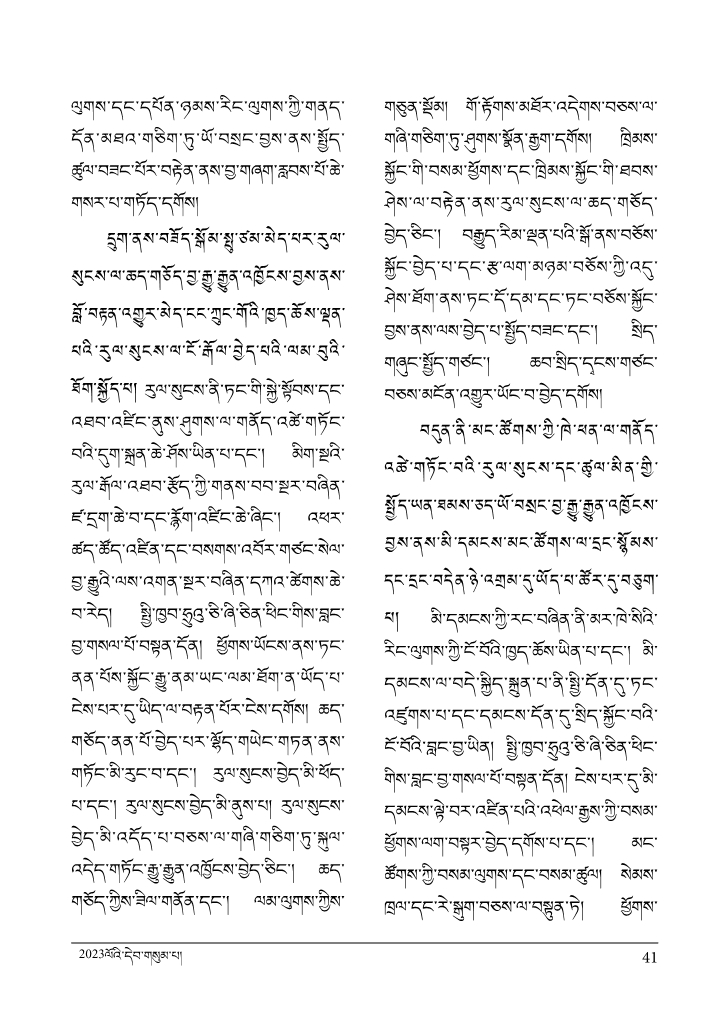 ལུགས་དང་དཔོན་ཉམས་རིང་ལུགས་ཀྱི་གནད་
དོན་མཐའ་གཅིག་ཏུ་ཡོ་བསྲང་བྱས་ནས་སྤྱོད་
ཚུལ་བཟང་པོར་བརྟེན་ནས་བྱ་གཞག་རླབས་པོ་ཆེ་
གསར་པ་གཏོད་དགོས།
དྲུག་ནས་བཟོད་སྒོམ་སྤུ་ཙམ་མེད་པར་རུལ་
སུངས་ལ་ཆད་གཅོད་བྱ་རྒྱུ་རྒྱུན་འཁྱོངས་བྱས་ནས་
བློ་བརྟན་འགྱུར་མེད་ངང་ཀྲུང་གོའི་ཁྱད་ཆོས་ལྡན་
པའི་རུལ་སུངས་ལ་ངོ་རྒོལ་བྱེད་པའི་ལམ་བུའི་
ཐོག་སྐྱོད་པ། རུལ་སུངས་ནི་ཏང་གི་སྐྱེ་སྟོབས་དང་
འཐབ་འཛིང་ནུས་ཤུགས་ལ་གནོད་འཚེ་གཏོང་
བའི་དུག་སྐྲན་ཆེ་ཤོས་ཡིན་པ་དང་། མིག་སྔའི་
རུལ་རྒོལ་འཐབ་རྩོད་ཀྱི་གནས་བབ་སྔར་བཞིན་
ཛ་དྲག་ཆེ་བ་དང་རྙོག་འཛིང་ཆེ་ཞིང་། འཕར་
ཚད་ཚོད་འཛིན་དང་བསགས་འབོར་གཙང་སེལ་
བྱ་རྒྱུའི་ལས་འགན་སྔར་བཞིན་དཀའ་ཚེགས་ཆེ་
བ་རེད། སྤྱི་ཁྱབ་ཧྲུའུ་ཅི་ཞི་ཅིན་ཕིང་གིས་བླང་
བྱ་གསལ་པོ་བསྟན་དོན། ཕྱོགས་ཡོངས་ནས་ཏང་
ནན་པོས་སྐྱོང་རྒྱུ་ནམ་ཡང་ལམ་ཐོག་ན་ཡོད་པ་
ངེས་པར་དུ་ཡིད་ལ་བརྟན་པོར་ངེས་དགོས། ཆད་
གཅོད་ནན་པོ་བྱེད་པར་ལྷོད་གཡེང་གཏན་ནས་
གཏོང་མི་རུང་བ་དང་། རུལ་སུངས་བྱེད་མི་ཕོད་
པ་དང་། རུལ་སུངས་བྱེད་མི་ནུས་པ། རུལ་སུངས་
བྱེད་མི་འདོད་པ་བཅས་ལ་གཞི་གཅིག་ཏུ་སྐུལ་
འདེད་གཏོང་རྒྱུ་རྒྱུན་འཁྱོངས་བྱེད་ཅིང་། ཆད་
གཅོད་ཀྱིས་ཟིལ་གནོན་དང་། ལམ་ལུགས་ཀྱིས་
གཅུན་སྡོམ། གོ་རྟོགས་མཐོར་འདེགས་བཅས་ལ་
གཞི་གཅིག་ཏུ་ཤུགས་སྣོན་རྒྱག་དགོས། ཁྲིམས་
སྐྱོང་གི་བསམ་ཕྱོགས་དང་ཁྲིམས་སྐྱོང་གི་ཐབས་
ཤེས་ལ་བརྟེན་ནས་རུལ་སུངས་ལ་ཆད་གཅོད་
བྱེད་ཅིང་། བརྒྱུད་རིམ་ལྡན་པའི་སྒོ་ནས་བཅོས་
སྐྱོང་བྱེད་པ་དང་རྩ་ལག་མཉམ་བཅོས་ཀྱི་འདུ་
ཤེས་ཐོག་ནས་ཏང་དོ་དམ་དང་ཏང་བཅོས་སྐྱོང་
བྱས་ནས་ལས་བྱེད་པ་སྤྱོད་བཟང་དང་། སྲིད་
གཞུང་སྤྱོད་གཙང་། ཆབ་སྲིད་དྭངས་གཙང་
བཅས་མངོན་འགྱུར་ཡོང་བ་བྱེད་དགོས།
བདུན་ནི་མང་ཚོགས་ཀྱི་ཁེ་ཕན་ལ་གནོད་
འཚེ་གཏོང་བའི་རུལ་སུངས་དང་ཚུལ་མིན་གྱི་
སྤྱོད་ཡན་ཐམས་ཅད་ཡོ་བསྲང་བྱ་རྒྱུ་རྒྱུན་འཁྱོངས་
བྱས་ནས་མི་དམངས་མང་ཚོགས་ལ་དྲང་སྙོམས་
དང་དྲང་བདེན་ཉེ་འགྲམ་དུ་ཡོད་པ་ཚོར་དུ་བཅུག་
པ། མི་དམངས་ཀྱི་རང་བཞིན་ནི་མར་ཁེ་སིའི་
རིང་ལུགས་ཀྱི་ངོ་བོའི་ཁྱད་ཆོས་ཡིན་པ་དང་། མི་
དམངས་ལ་བདེ་སྐྱིད་སྐྲུན་པ་ནི་སྤྱི་དོན་དུ་ཏང་
འཛུགས་པ་དང་དམངས་དོན་དུ་སྲིད་སྐྱོང་བའི་
ངོ་བོའི་བླང་བྱ་ཡིན། སྤྱི་ཁྱབ་ཧྲུའུ་ཅི་ཞི་ཅིན་ཕིང་
གིས་བླང་བྱ་གསལ་པོ་བསྟན་དོན། ངེས་པར་དུ་མི་
དམངས་ལྟེ་བར་འཛིན་པའི་འཕེལ་རྒྱས་ཀྱི་བསམ་
ཕྱོགས་ལག་བསྟར་བྱེད་དགོས་པ་དང་། མང་
ཚོགས་ཀྱི་བསམ་ལུགས་དང་བསམ་ཚུལ། སེམས་
ཁྲལ་དང་རེ་སྒུག་བཅས་ལ་བསྟུན་ཏེ། ཕྱོགས་
2023ལོའི་དེབ་གསུམ་པ།
41